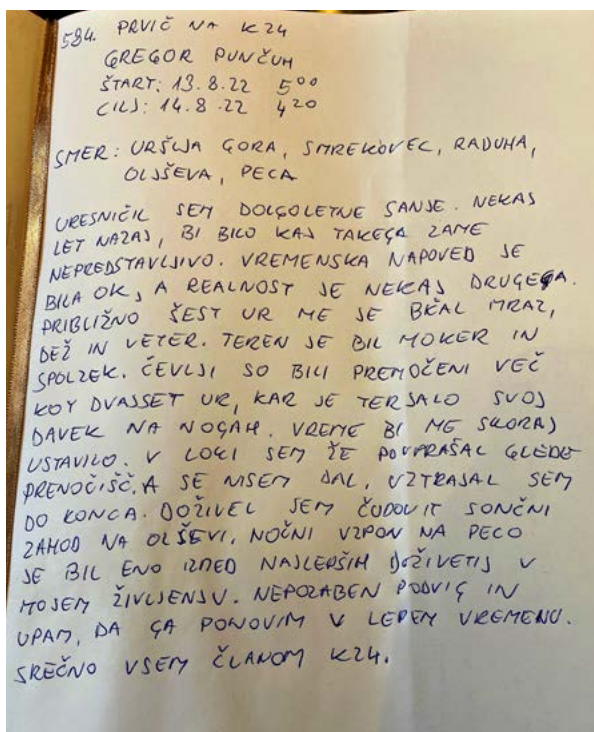 584. PRVIČ NA K24
GREGOR PUNČUH
ŠTART: 13.8.22 5⁰⁰
CILJ: 14.8.22 4²⁰
SMER: URŠLJA GORA, SMREKOVEC, RADUHA,
OLJŠEVA, PECA
URESNIČIL SEM DOLGOLETNE SANJE. NEKAJ
LET NAZAJ, BI BILO KAJ TAKEGA ZAME
NEPREDSTAVLJIVO. VREMENSKA NAPOVED JE
BILA OK, A REALNOST JE NEKAJ DRUGEGA.
PRIBLIŽNO ŠEST UR ME JE BIČAL MRAZ,
DEŽ IN VETER. TEREN JE BIL MOKER IN
SPOLZEK. ČEVLJI SO BILI PREMOČENI VEČ
KOT DVAJSET UR, KAR JE TERJALO SVOJ
DAVEK NA NOGAH. VREME BI ME SKORAJ
USTAVILO. V LOGI SEM ŽE POVPRAŠAL GLEDE
PRENOČIŠČ, A SE NISEM DAL, VZTRAJAL SEM
DO KONCA. DOŽIVEL SEM ČUDOVIT SONČNI
ZAHOD NA OLŠEVI. NOČNI VZPON NA PECO
JE BIL ENO IZMED NAJLEPŠIH DOŽIVETIJ V
MOJEM ŽIVLJENJU. NEPOZABEN PODVIG IN
UPAM, DA GA PONOVIM V LEPEM VREMENU.
SREČNO VSEM ČLANOM K24.